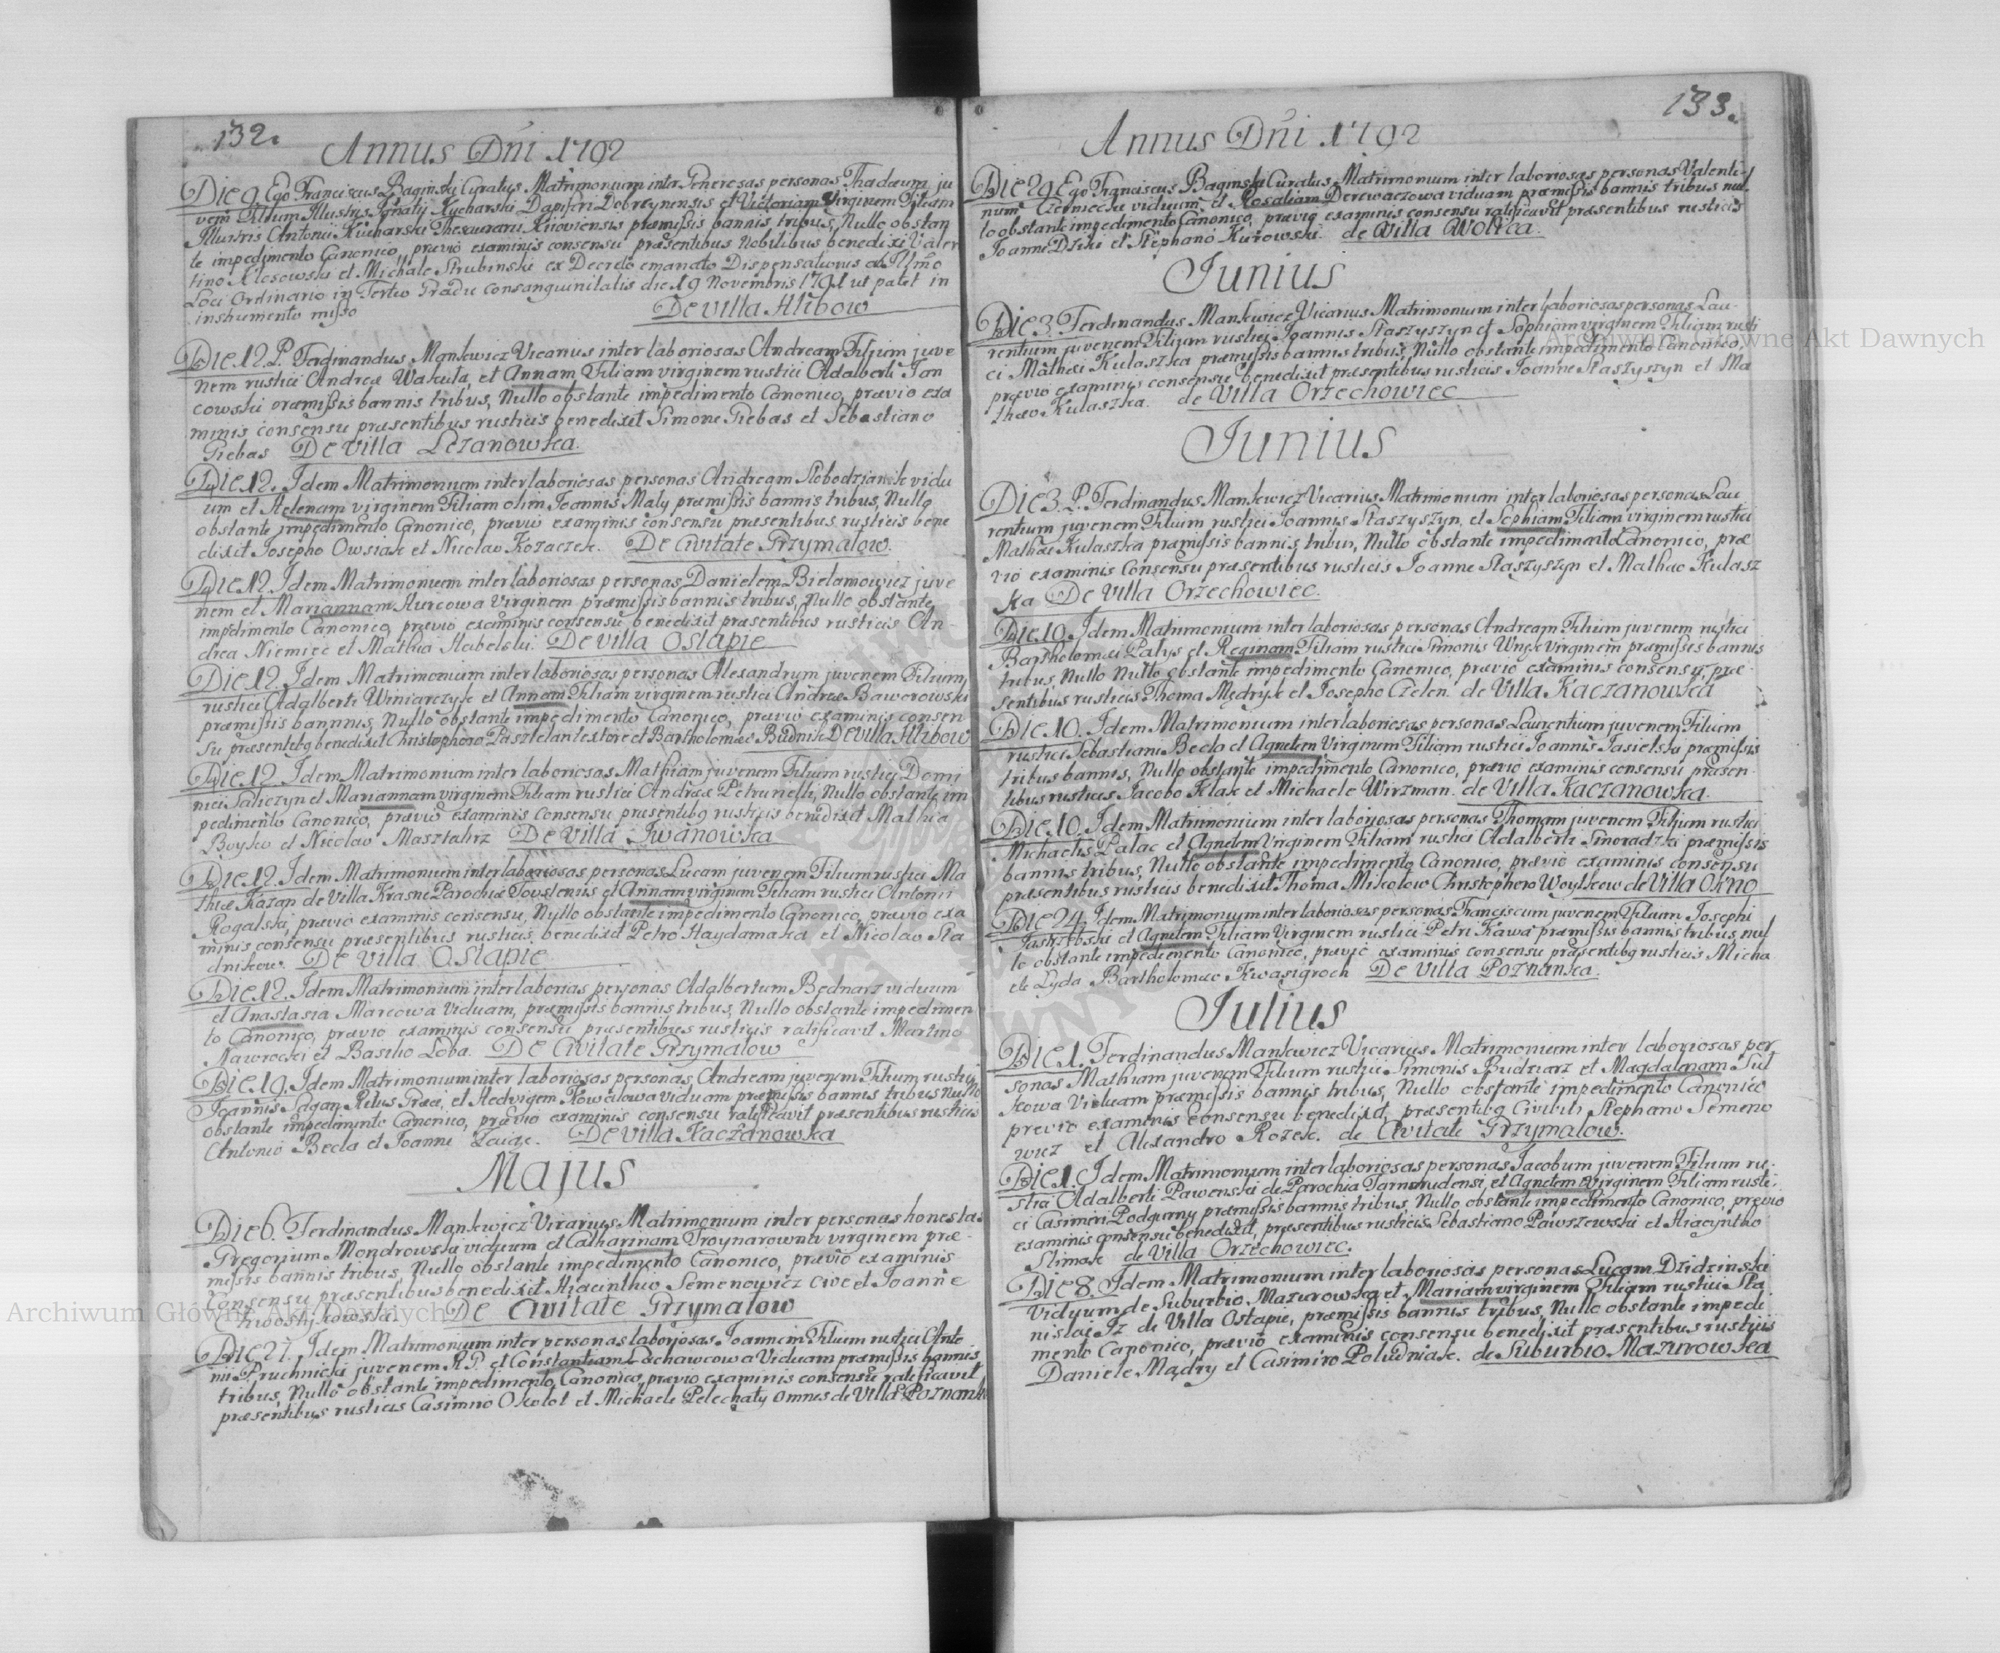 132.
Annus Dni 1792
Die 9 Ego Franciscus Baginski Curatus Matrimonium inter Generosas personas Thadæum ju
venem Filium Illustris Ignaty Kucharski Dapiferi Dobrynensis et Victoriam Virginem Filiam
Illustris Antonii Kucharski Thesaurarii Kiioviensis præmissis bannis tribus, Nullo obstan
te impedimento Canonico, prævio examinis consensu præsentibus Nobilibus benedixi Valen
tino Klosowski et Michale Strubinski ex Decreto emanato Dispensationis ab Illmo
Loci Ordinario in Tertio Gradu consanguinitatis die 19 Novembris 1791 ut patet in
instrumento misso De Villa Hlibow
Die 12 P. Ferdinandus Mankewicz Vicarius inter laboriosas Andream Filium juve
nem rustici Andreæ Wakuta, et Annam Filiam virginem rustici Adalberti Jan
cowski præmissis bannis tribus, Nullo obstante impedimento Canonico, prævio exa
minis consensu præsentibus rusticis benedixit Simone Giebas et Sebastiano
Giebas De Villa Lezanowka.
Die 12. Idem Matrimonium inter laboriosas personas Andream Slobodzianik vidu
um et Helenam virginem Filiam olim Joannis Maly præmissis bannis tribus, Nullo
obstante impedimento Canonico, prævio examinis consensu præsentibus rusticis bene
dixit Josepho Owsiak et Nicolao Kozaczek. De Civitate Grzymalow.
Die 12 Idem Matrimonium inter laboriosas personas Danielem Bielamowicz juve
nem et Mariannam Hurcowa Virginem præmissis bannis tribus, Nullo obstante
impedimento Canonico, prævio examinis consensu benedixit præsentibus rusticis An-
drea Niemiec et Mathia Habelski. De Villa Ostapie
Die 12. Idem Matrimonium inter laboriosas personas Alexandrum juvenem Filium
rustici Adalberti Winiarczyk et Annam Filiam virginem rustici Andreæ Baworowski
præmissis bannis, Nullo obstante impedimento Canonico, prævio examinis consen
su præsentibg benedixit Christophoro textore et Bartholomæo Budnik De Villa Hlibow
Die 12 Idem Matrimonium inter laboriosas Mathiam juvenem Filium rustici Domi
nici Saliczyn et Mariannam virginem Filiam rustici Andreæ Petrunelli, Nullo obstante im
pedimento Canonico, prævio examinis Consensu præsentibg rusticis benedixit Mathia
Boyko et Nicolao Masztalirz De Villa Iwanowka
Die 12. Idem Matrimonium inter laboriosas personas Lucam juvenem Filium rustici Ma
thiæ Kazan de Villa Krasne Parochiæ Touslensis et Annam virginem Filiam rustici Antonii
Rogalski, prævio examinis consensu, Nullo obstante impedimento Canonico, prævio exa
minis consensu præsentibus rusticis benedixit Petro Haydamaka et Nicolao Sta
dnikow. De Villa Ostapie
Die 12. Idem Matrimonium inter laborias personas Adalbertum Bednarz viduum
et Anastasia Marcowa Viduam, præmissis bannis tribus, Nullo obstante impedimen
to Canonico, prævio examinis consensu præsentibus rusticis ratificavit Martino
Nawrocki et Basilio Loba. De Civitate Grzymalow
Die 19. Idem Matrimonium inter laboriosas personas Andream juvenem Filium rustici
Joannis Sagan Ritus Græci, et Hedvigem Kowalowa viduam præmissis bannis tribus Nullo
obstante impedimento Canonico, prævio examinis consensu ratificavit præsentibus rusticis
Antonio Becla et Joanne De Villa Kaczanowka
Majus
Die 6. Ferdinandus Mankewicz Vicarius Matrimonium inter personas honestas
Gregorium Mondrowski viduum et Catharinam Troynarowna virginem præ-
missis bannis tribus, Nullo obstante impedimento Canonico, prævio examinis
Consensu præsentibus benedixit Hiacintho Semenowicz cive et Joanne
De Civitate Grzymalow
Die 27. Idem Matrimonium inter personas laboriosas Joannem Filium rustici Anto
nii Pruchnicki juvenem R.G. et Constantiam Lachawcowa Viduam præmissis bannis
tribus, Nullo obstante impedimento Canonico, prævio examinis consensu ratificavit
præsentibus rusticis Casimiro Okolot et Michaele Pelechaty omnes de Villa Poznank
133.
Annus Dni 1792
Die 29 Ego Franciscus Baginski Curatus Matrimonium inter laboriosas personas Valenti-
num Czernecki viduum et Rosaliam Derewaczowa viduam præmissis bannis tribus nul
lo obstante impedimento Canonico, prævio examinis consensu ratificavit præsentibus rusticis
Joanne Dziki et Stephano Kurowski. de Villa Wolica.
Junius
Die 3. Ferdinandus Mankewicz Vicarius Matrimonium inter laboriosas personas Lau-
rentium juvenem Filium rustici Joannis Staszyszyn et Sophiam virginem Filiam rusti
ci Mathæi Kulaszka præmissis bannis tribus, Nullo obstante impedimento Canonico,
prævio examinis consensu benedixit præsentibus rusticis Joanne Staszyszyn et Ma
thæo Kulaszka. de Villa Orzechowiec
Junius
Die 3. P. Ferdinandus Mankewicz Vicarius Matrimonium inter laboriosas personas Lau
rentium juvenem Filium rustici Joannis Staszyszyn, et Sophiam Filiam virginem rustici
Mathæi Kulaszka præmissis bannis tribus, Nullo obstante impedimento Canonico, præ
vio examinis Consensu præsentibus rusticis Joanne Staszyszyn et Mathæo Kulasz
ka De Villa Orzechowiec.
Die 10. Idem Matrimonium inter laboriosas personas Andream Filium juvenem rustici
Bartholomæi Patys et Reginam Filiam rustici Simonis Wnyk Virginem præmissis bannis
tribus, Nullo Nullo obstante impedimento Canonico, prævio examinis consensu, præ-
sentibus rusticis Thoma Mędryk et Josepho Czelen. de Villa Kaczanowka
Die 10. Idem Matrimonium inter laboriosas personas Laurentium juvenem Filium
rustici Sebastiani Becla et Agnetem Virginem Filiam rustici Joannis Jasielski præmissis
tribus bannis, Nullo obstante impedimento Canonico, prævio examinis consensu præsen-
tibus rusticis Jacobo Klak et Michaele Wirzman. de Villa Kaczanowka.
Die 10. Idem Matrimonium inter laboriosas personas Thomam juvenem Filium rustici
Michaelis Palac et Agnetem Virginem Filiam rustici Adalberti Sinoradzki præmissis
bannis tribus, Nullo obstante impedimento Canonico, prævio examinis consensu
præsentibus rusticis benedixit Thoma Mikolow Christophoro Woytkow de Villa Okno
Die 24. Idem Matrimonium inter laboriosas personas Franciscum juvenem Filium Josephi
Jastrzębski et Agnetem Filiam Virginem rustici Petri Kawa præmissis bannis tribus, nul
lo obstante impedimento Canonico, prævio examinis consensu præsentibg rusticis Micha
ele Lyda Bartholomæo Kwasigroch De Villa Poznanka.
Julius
Die 1. Ferdinandus Mankewicz Vicarius Matrimonium inter laboriosas per
sonas Mathiam juvenem Filium rustici Simonis Budziarz et Magdalenam Sul
kowa Viduam præmissis bannis tribus, Nullo obstante impedimento Canonico
prævio examinis Consensu benedixit, præsentibg Civibus Stephano Semeno
wicz et Alexandro Rozek. de Civitate Grzymalow.
Die 1. Idem Matrimonium inter laboriosas personas Jacobum juvenem Filium ru-
stici Adalberti Pawenski de Parochia Tarnorudensi, et Agnetem Virginem Filiam rusti-
ci Casimiri Podgurny præmissis bannis tribus, Nullo obstante impedimento Canonico, prævio
examinis consensu benedixit, præsentibus rusticis Sebastiano Pawszewski et Hiacyntho
Slimak de Villa Orzechowiec.
Die 8. Idem Matrimonium inter laboriosas personas Lucam Dzidzinski
Viduum de Suburbio Mazurowka et Mariam virginem Filiam rustici Sta
nislai Iz de Villa Ostapie, præmissis bannis tribus, Nullo obstante impedi
mento Canonico, prævio examinis consensu benedixit præsentibus rusticis
Daniele Mądry et Casimiro Poludniak. de Suburbio Mazurowka
Archiwum Główne Akt Dawnych
Archiwum Główne Akt Dawnych